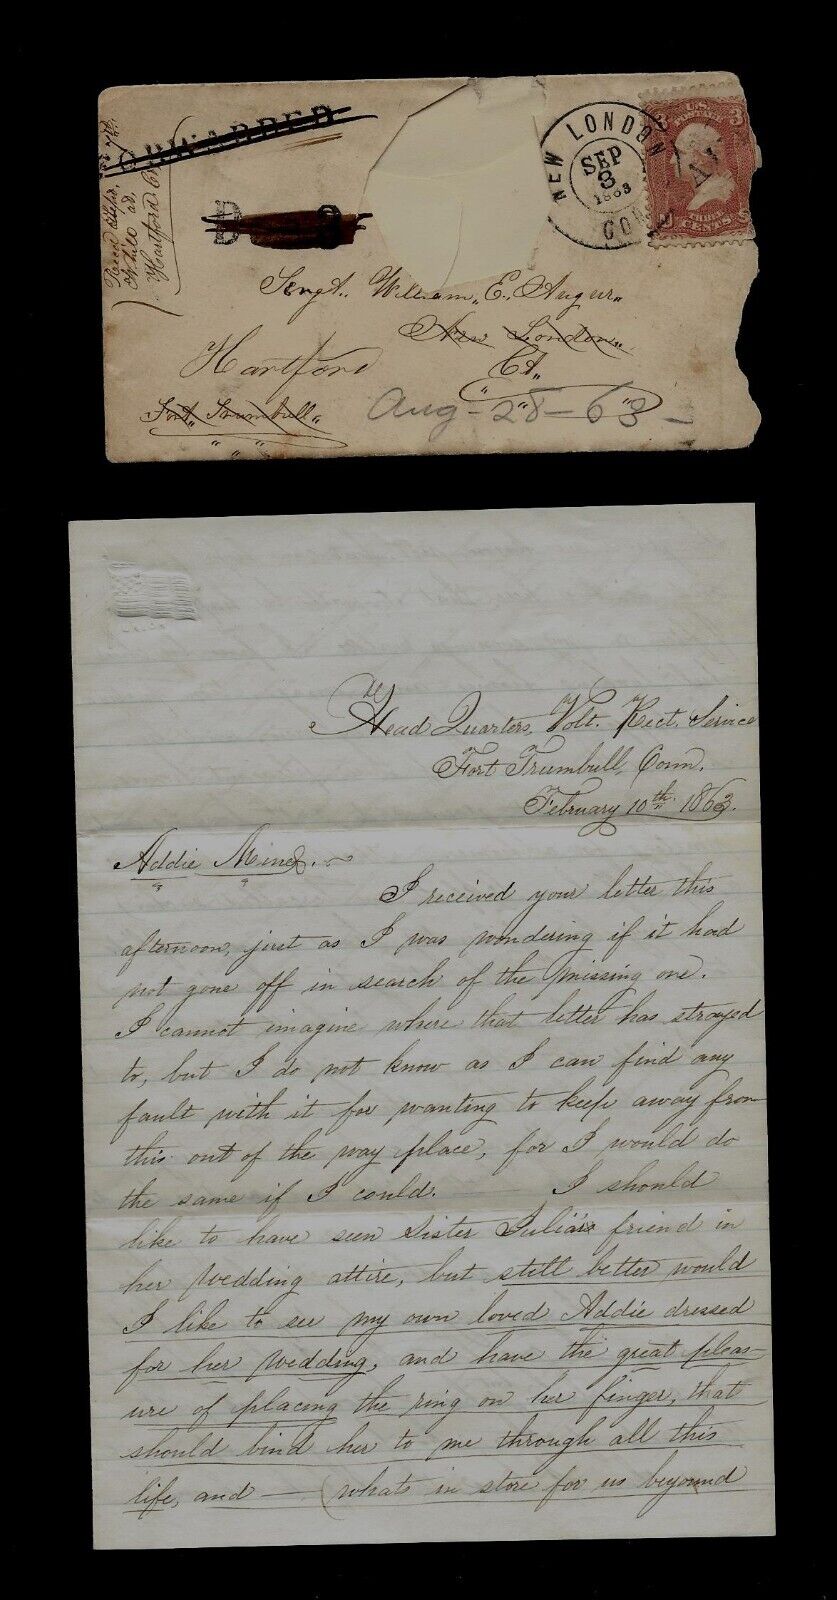 FORWARDED
D 3
NEW LONDON
SEP
3
1863
CON
U.S.
POSTAGE
3
CENTS
Hartford
Sergt. William E. Augur
New London
Hartford
Ct.
Fort Trumbull
Aug-28-63-
Head Quarters, Volt. Rect. Service
Fort Trumbull, Conn.
February 10th 1863.
Addie Mine,
I received your letter this
afternoon, just as I was wondering if it had
not gone off in search of the missing one.
I cannot imagine where that letter has strayed
to, but I do not know as I can find any
fault with it for wanting to keep away from
this out of the way place, for I would do
the same if I could. I should
like to have seen Sister Julia's friend in
her wedding attire, but still better would
I like to see my own loved Addie dressed
for her wedding, and have the great pleas-
ure of placing the ring on her finger, that
should bind her to me through all this
life, and — (whats in store for us beyound